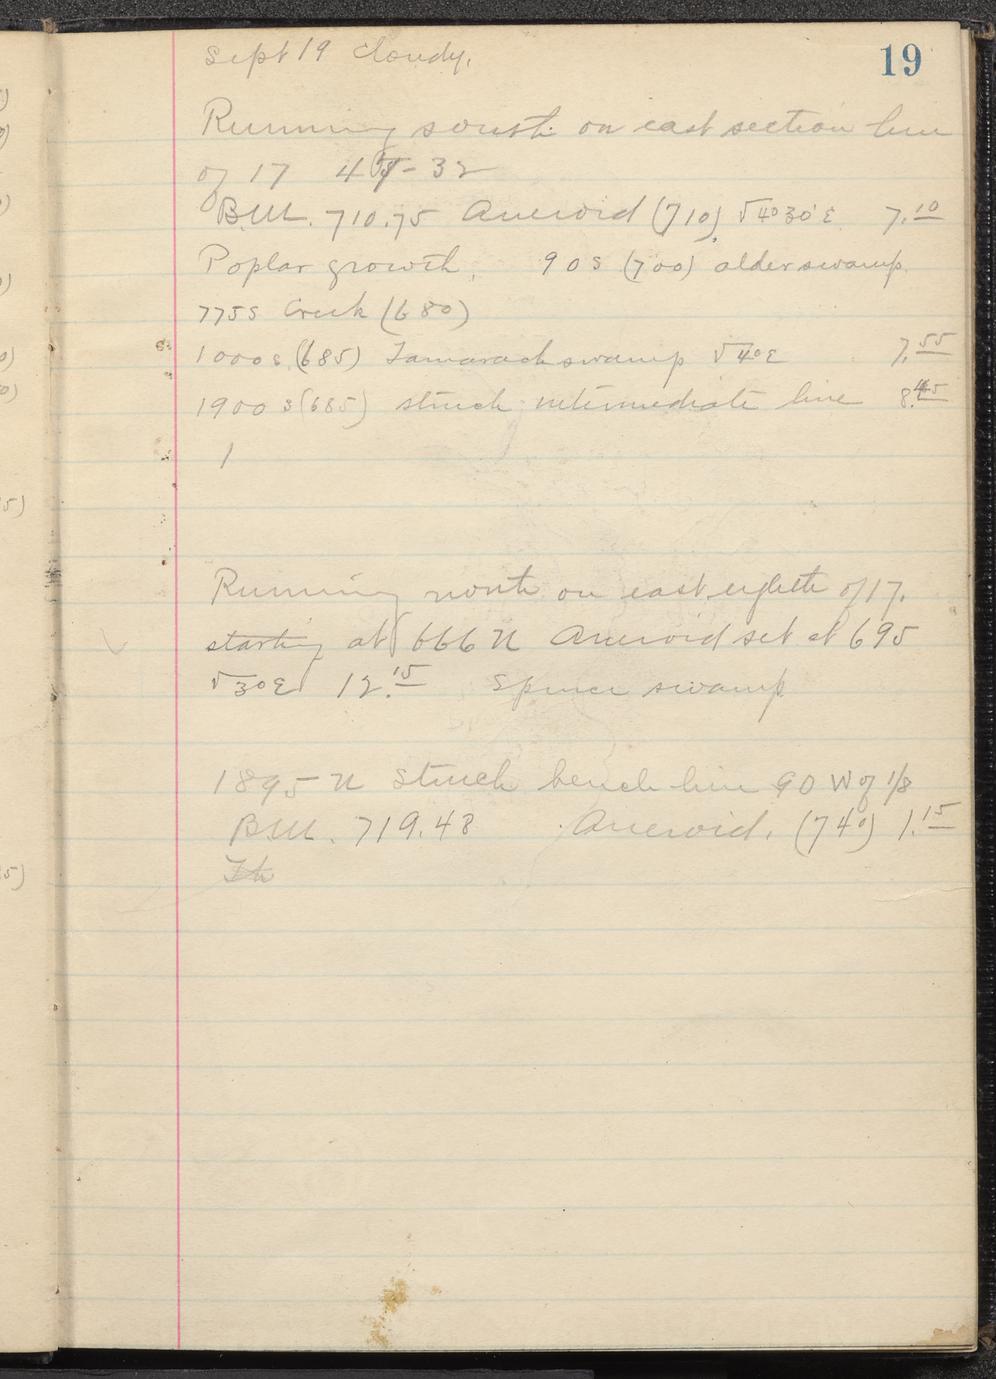 19
Sept 19 Cloudy.
Running south on east section line
of 17 4 - 32
B.M. 710.75 Aneroid (710) √4°30'E 7.10
Poplar growth. 90 S (700) alder swamp.
775 S Creek (680)
1000 S. (685) Tamarack swamp √4°E 7.55
1900 S (685) struck intermediate line 8.45
1
Running north on east eighth of 17.
starting at 666 N Aneroid set at 695
√3°E 12.15 Spruce swamp
1895 N Struck bench line 90 W of 1/8
B.M. 719.48 Aneroid. (740) 1.15